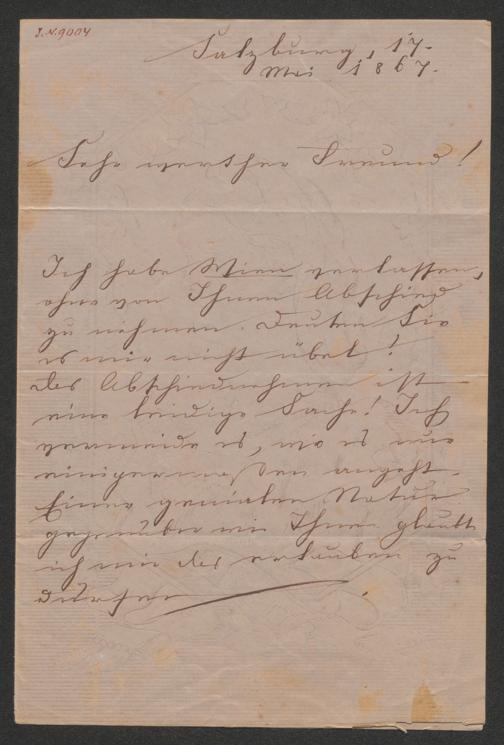 I.N. 9004
Salzburg, 17.
Mai 1867.
Sehr werther Freund!
Ich habe Wien verlassen,
ohne von Ihnen Abschied
zu nehmen. Deuten Sie
es mir nicht übel!
das Abschiednehmen ist
eine leidige Sache! Ich
vermeide es, wo es nur
einigermaßen angeht.
Einer genialen Natur
gegenüber wie Ihnen glaubte
ich mir das erlauben zu
dürfen